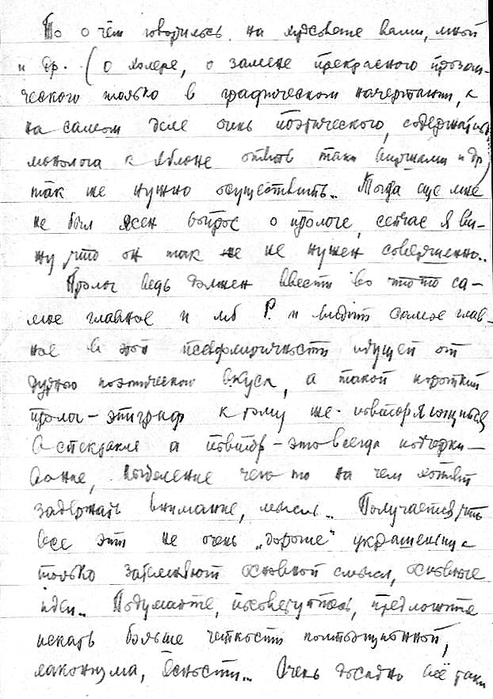 То о чём говорилось на худсовете вами, мной
и др. (о холере, о замене прекрасного прозаи-
ческого только в графическом начертании, а
на самом деле очень поэтического, содержания
монолога к яблоне опять таки виршами и др)
так же нужно осуществить.. Тогда еще мне
не был ясен вопрос о прологе, сейчас я ви-
жу, что он так же не нужен совершенно..
Пролог ведь должен ввести во что то са-
мое главное и мб Р. и видит самое глав-
ное в этой псевдолиричности идущей от
дурного поэтического вкуса, а такой короткий
пролог - эпиграф к тому же повторяющийся
в спектакле а повтор - это всегда подчерки-
вание, выделение чего то на чем хотят
задержать внимание, мысль.. Получается, что
все эти не очень „дорогие" украшения
только затемняют основной смысл, основные
идеи.. Подумайте, посоветуйтесь, предложите
искать больше четкости композиционной,
лаконизма, ясности... Очень досадно всё таки